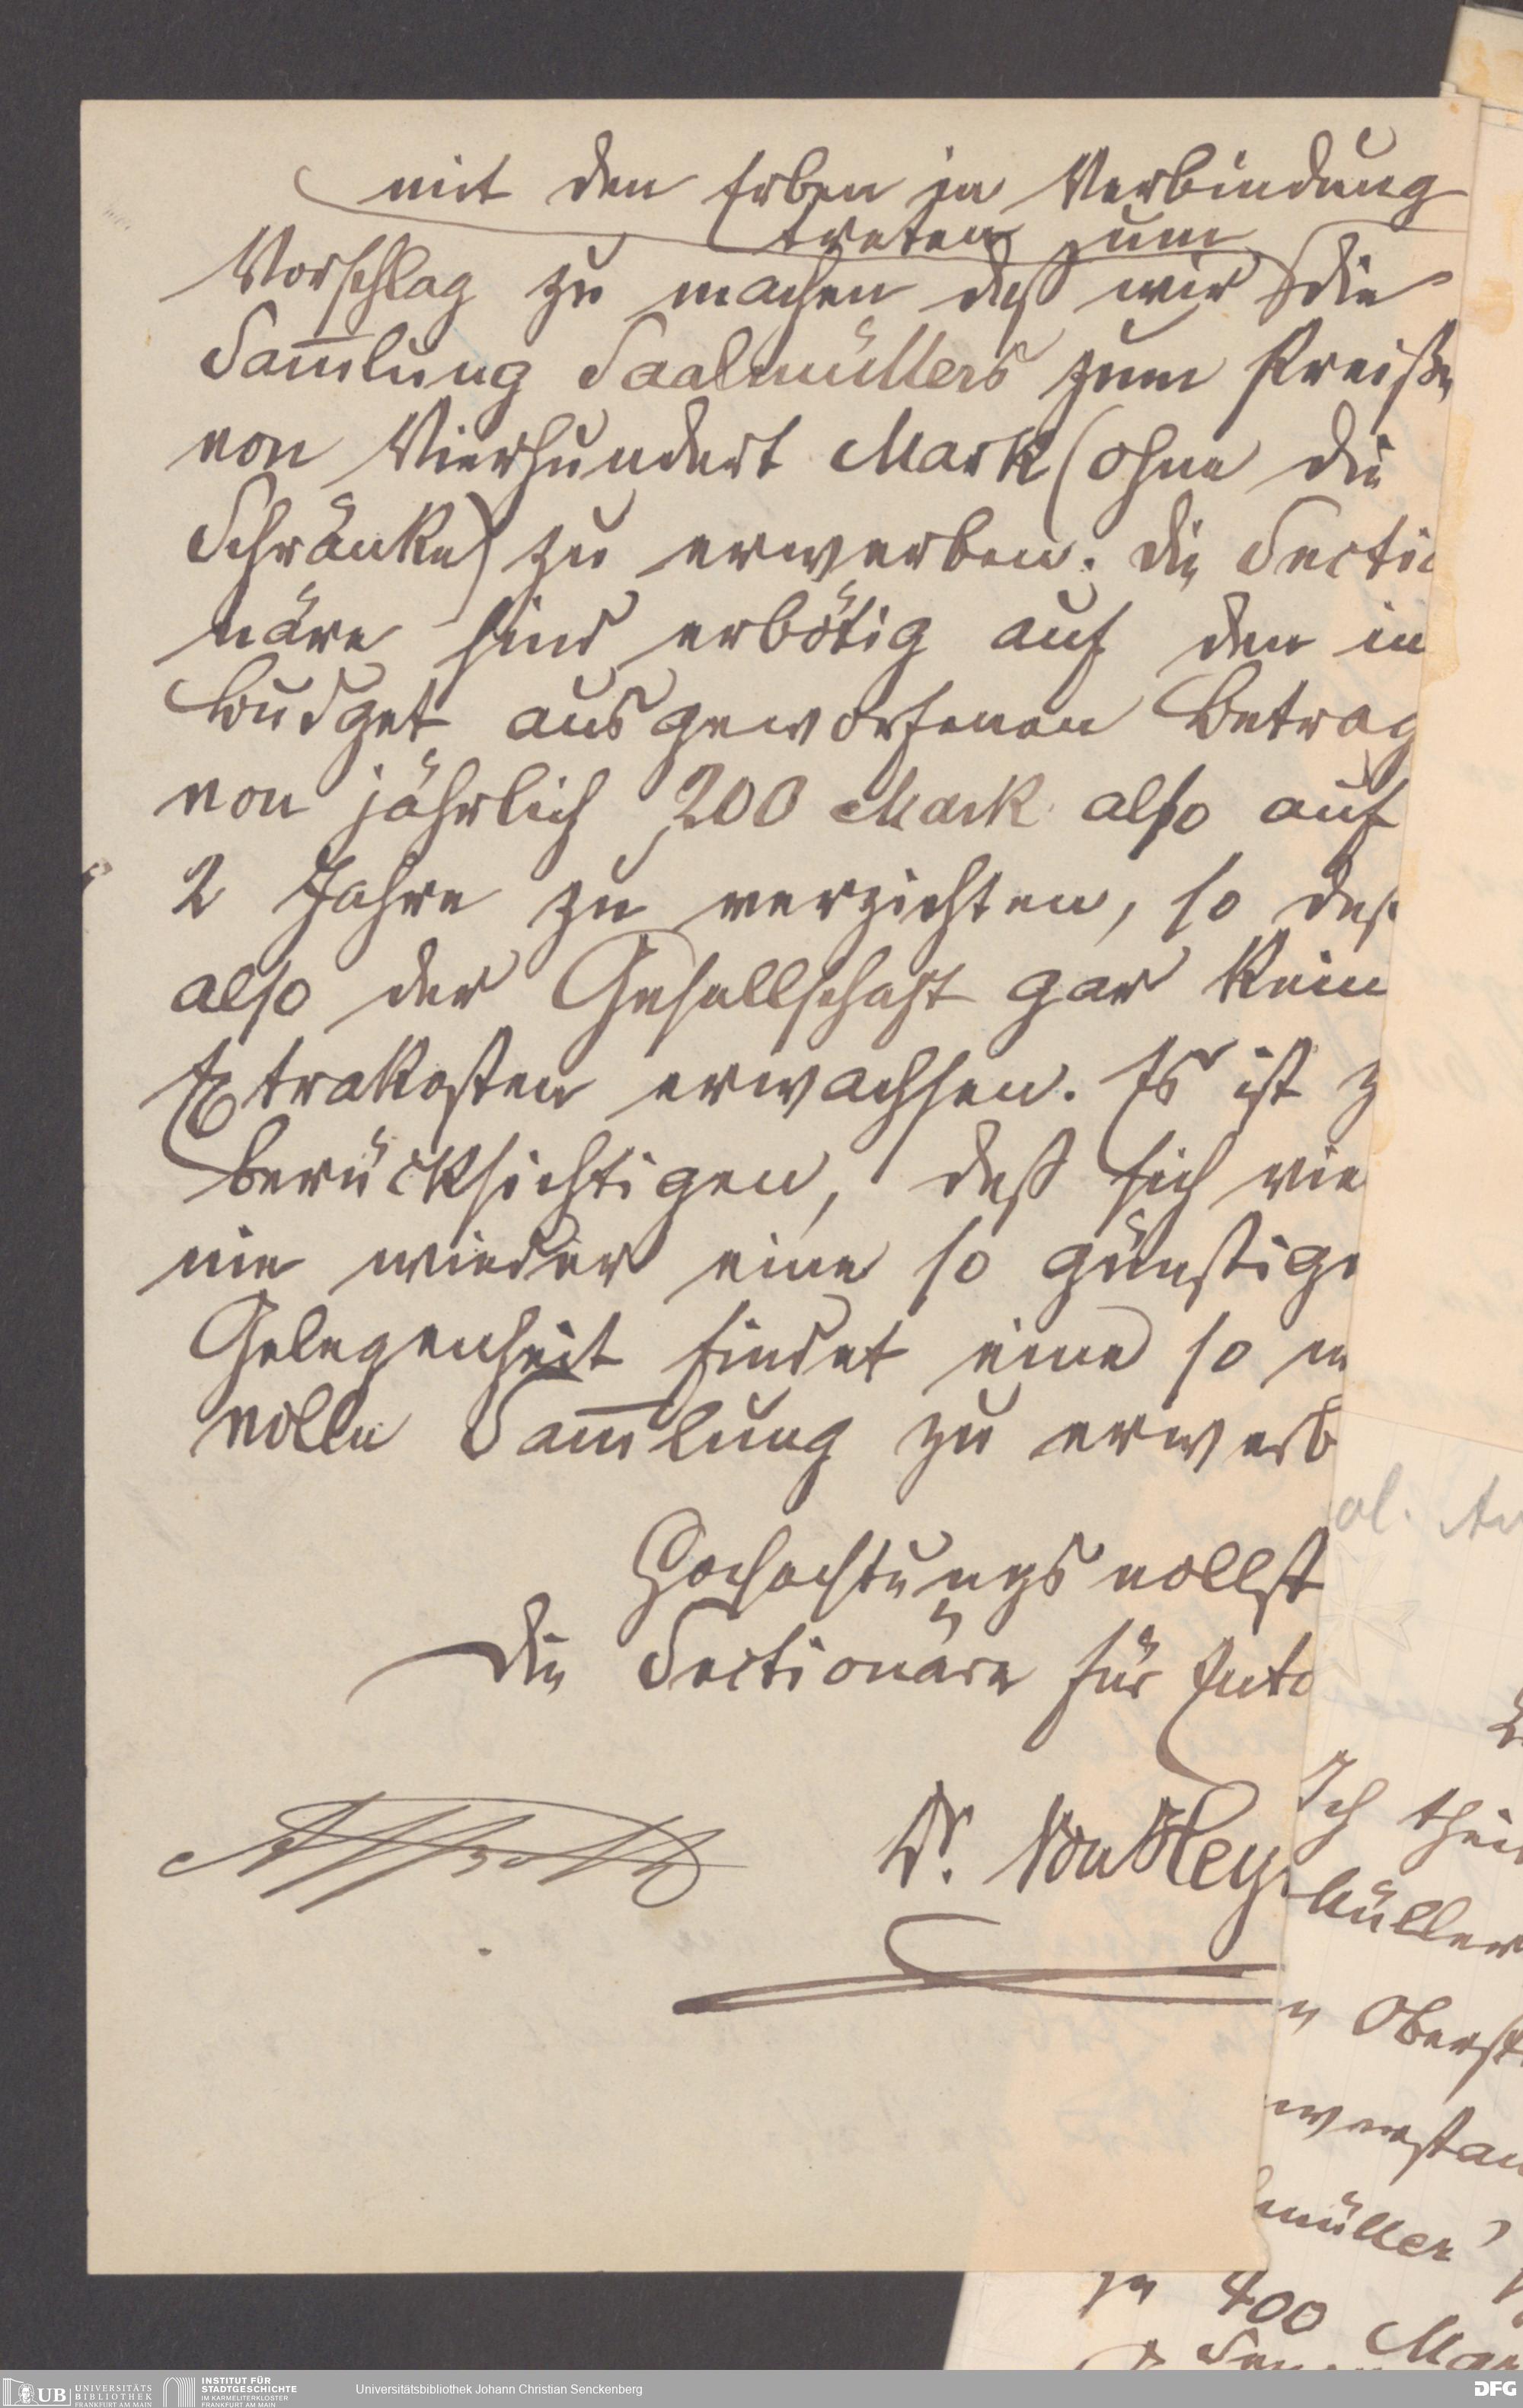 mit den Erben in Verbindung
treten um
Vorschlag zu machen daß wir die
Sam̅lung Saalmüllers zum Preiße
von Vierhundert Mark (ohne die
Schränke) zu erwerben. Die Sectio
näre sind erbötig auf den in
Budget ausgeworfenen Betrag
von jährlich 200 Mark also auf
2 Jahre zu verzichten, so daß
also der Gesellschaft gar kein
Extrakosten erwachsen. Es ist z
berücksichtigen, daß sich vie
nie wieder eine so günstige
Gelegenheit findet eine so
volle Sam̅lung zu erwerb
Hochachtungsvollst
Die Sectionäre für Ento
Dr. von Hey
ol.
Ich thei
müller
n Oberst
nverstan
lmüller
zu 400 Mar
UB UNIVERSITÄTS BIBLIOTHEK FRANKFURT AM MAIN
INSTITUT FÜR STADTGESCHICHTE IM KARMELITERKLOSTER FRANKFURT AM MAIN
Universitätsbibliothek Johann Christian Senckenberg
DFG